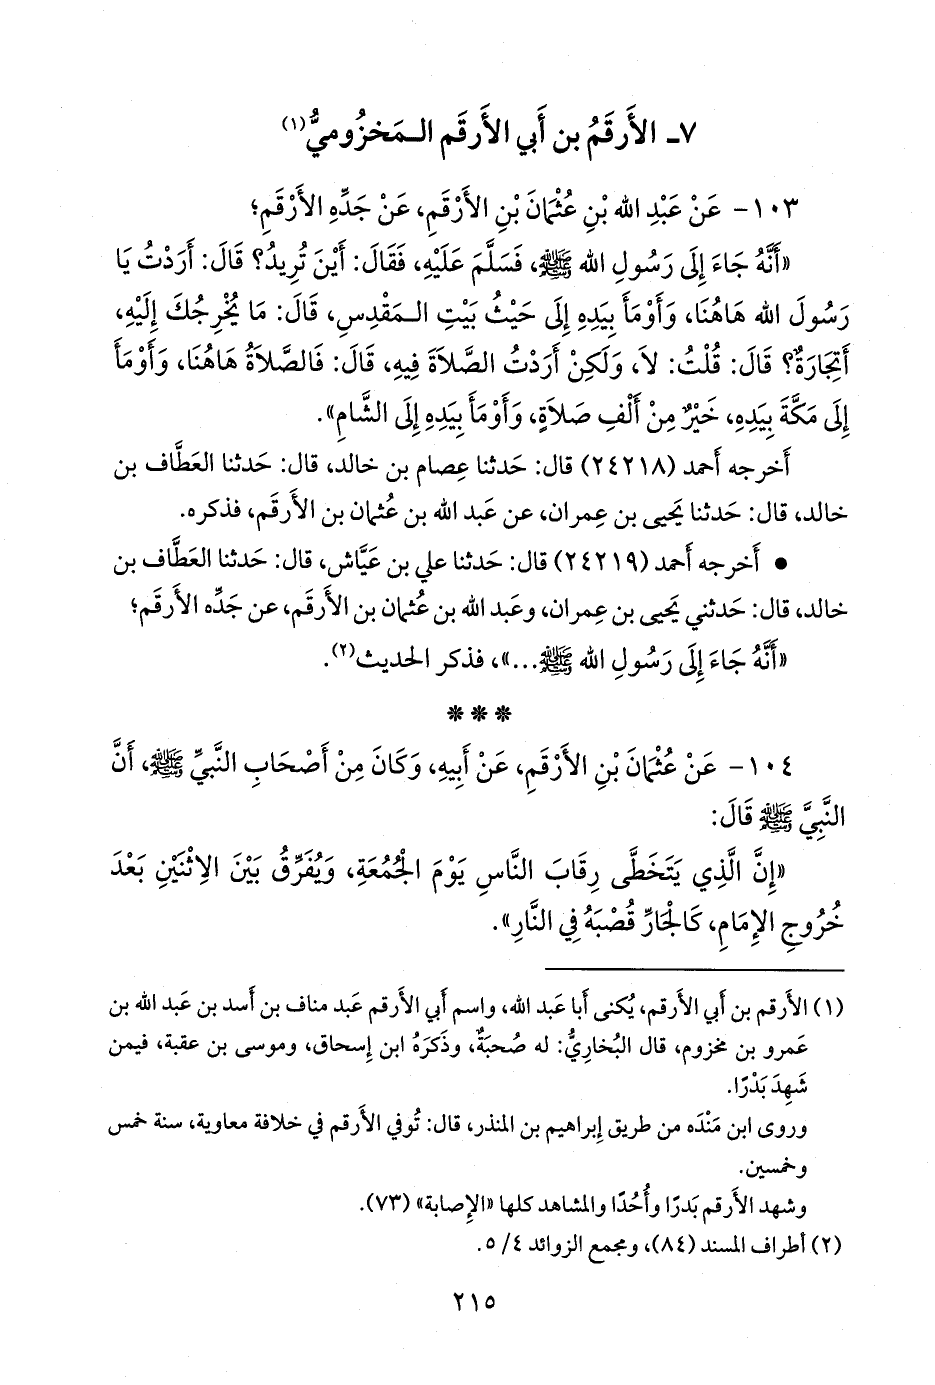 ٧ـ الأَرقَمُ بن أَبي الأَرقَم الـمَخزُوميُّ(١)
١٠٣- عَنْ عَبْدِ الله بْنِ عُثْمَانَ بْنِ الأَرْقَمِ، عَنْ جَدِّهِ الأَرْقَمِ؛
«أَنَّهُ جَاءَ إِلَى رَسُولِ الله ﷺ، فَسَلَّمَ عَلَيْهِ، فَقَالَ: أَيْنَ تُرِيدُ؟ قَالَ: أَرَدْتُ يَا
رَسُولَ الله هَاهُنَا، وَأَوْمَأَ بِيَدِهِ إِلَى حَيْثُ بَيْتِ الـمَقْدِسِ، قَالَ: مَا يُخْرِجُكَ إِلَيْهِ،
أَتِجَارَةٌ؟ قَالَ: قُلْتُ: لاَ، وَلَكِنْ أَرَدْتُ الصَّلاَةَ فِيهِ، قَالَ: فَالصَّلاَةُ هَاهُنَا، وَأَوْمَأَ
إِلَى مَكَّةَ بِيَدِهِ، خَيْرٌ مِنْ أَلْفِ صَلاَةٍ، وَأَوْمَأَ بِيَدِهِ إِلَى الشَّامِ».
أَخرجه أَحمد (٢٤٢١٨) قال: حَدثنا عِصام بن خالد، قال: حَدثنا العَطَّاف بن
خالد، قال: حَدثنا يَحيى بن عِمران، عن عَبد الله بن عُثمان بن الأَرقَم، فذكره.
• أَخرجه أَحمد (٢٤٢١٩) قال: حَدثنا علي بن عَيَّاش، قال: حَدثنا العَطَّاف بن
خالد، قال: حَدثني يَحيى بن عِمران، وعَبد الله بن عُثمان بن الأَرقَم، عن جَدِّه الأَرقَم؛
«أَنَّهُ جَاءَ إِلَى رَسُولِ الله ﷺ...»، فذكر الحديث(٢).
***
١٠٤- عَنْ عُثْمَانَ بْنِ الأَرْقَمِ، عَنْ أَبِيهِ، وَكَانَ مِنْ أَصْحَابِ النَّبِيِّ ﷺ، أَنَّ
النَّبِيَّ ﷺ قَالَ:
«إِنَّ الَّذِي يَتَخَطَّى رِقَابَ النَّاسِ يَوْمَ الْجُمُعَةِ، وَيُفَرِّقُ بَيْنَ الاِثْنَيْنِ بَعْدَ
خُرُوجِ الإِمَامِ، كَالْجَارِّ قُصْبَهُ فِي النَّارِ».
(١) الأَرقم بن أَبي الأَرقم، يُكنى أَبا عَبد الله، واسم أَبي الأَرقم عَبد مناف بن أَسد بن عَبد الله بن
عَمرو بن مخزوم، قال البُخاريُّ: له صُحبَةٌ، وذَكَرَهُ ابن إِسحاق، وموسى بن عقبة، فيمن
شَهِدَ بَدْرًا.
وروى ابن مَنْدَه من طريق إِبراهيم بن المنذر، قال: تُوفي الأَرقم في خلافة معاوية، سنة خمس
وخمسين.
وشهد الأَرقم بَدرًا وأُحُدًا والمشاهد كلها «الإِصابة» (٧٣).
(٢) أطراف المسند (٨٤)، ومجمع الزوائد ٤/ ٥.
٢١٥